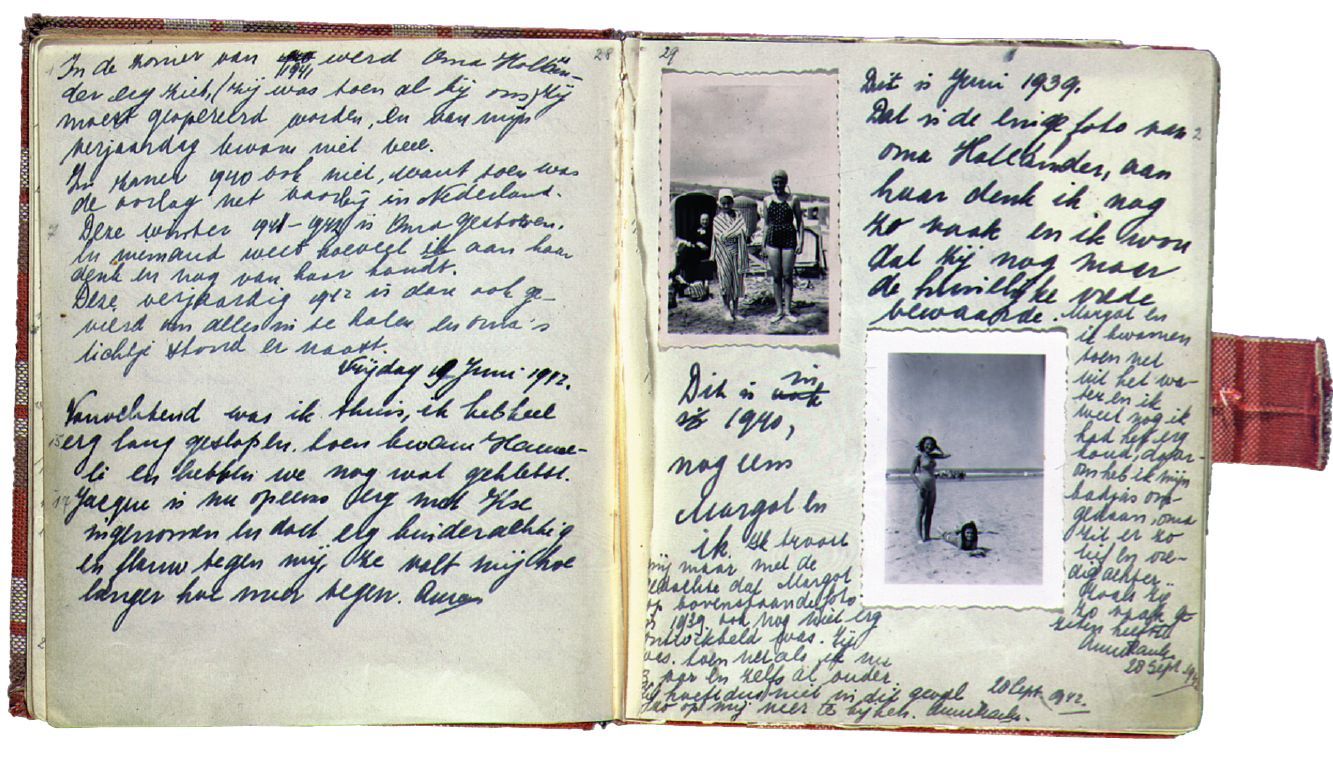 28
In de zomer van 1941 werd Oma Hollän-
der erg ziek, (zij was toen al bij ons) zij
moest geopereerd worden, en van mijn
verjaardag kwam niet veel.
In zomer 1940 ook niet, want toen was
de oorlog net voorbij in Nederland.
Deze winter 1941-1942 is Oma gestorven.
En niemand weet hoeveel ik aan haar
denk en nog van haar houdt.
Deze verjaardag 1942 is dan ook ge-
vierd om alles in te halen en oma's
lichtje stond er naast.
Vrijdag 19 Juni 1942.
Vanochtend was ik thuis, ik heb heel
erg lang geslapen, toen kwam Hanne-
li en hebben we nog wat gekletst.
Jacque is nu opeens erg met Ilse
ingenomen en doet erg kinderachtig
en flauw tegen mij, ze valt mij hoe
langer hoe meer tegen. Anne
29
Dit is Juni 1939.
Dat is de enige foto van
oma Holländer, aan
haar denk ik nog
zo vaak en ik wou
dat zij nog maar
de huiselijke vrede
bewaarde. Margot en
ik kwamen
toen net
uit het wa-
ter en ik
weet nog ik
had het erg
koud, daar-
om heb ik mijn
badjas om-
gedaan, oma
zit er zo
lief en vre-
dig achter..
Zoals ze
zo vaak ge-
zeten heeft.
Anne Frank.
28 Sept. 1942
Dit is in
1940,
nog eens
Margot en
ik. Ik troost
mij maar met de
gedachte dat Margot
op bovenstaande foto
in 1939 ook nog niet erg
ontwikkeld was. Zij
was toen net als ik nu
13 jaar en zelfs al ouder.
Zij hoeft dus niet in dit geval
zo op mij neer te kijken. Anne Frank.
28 Sept. 1942.